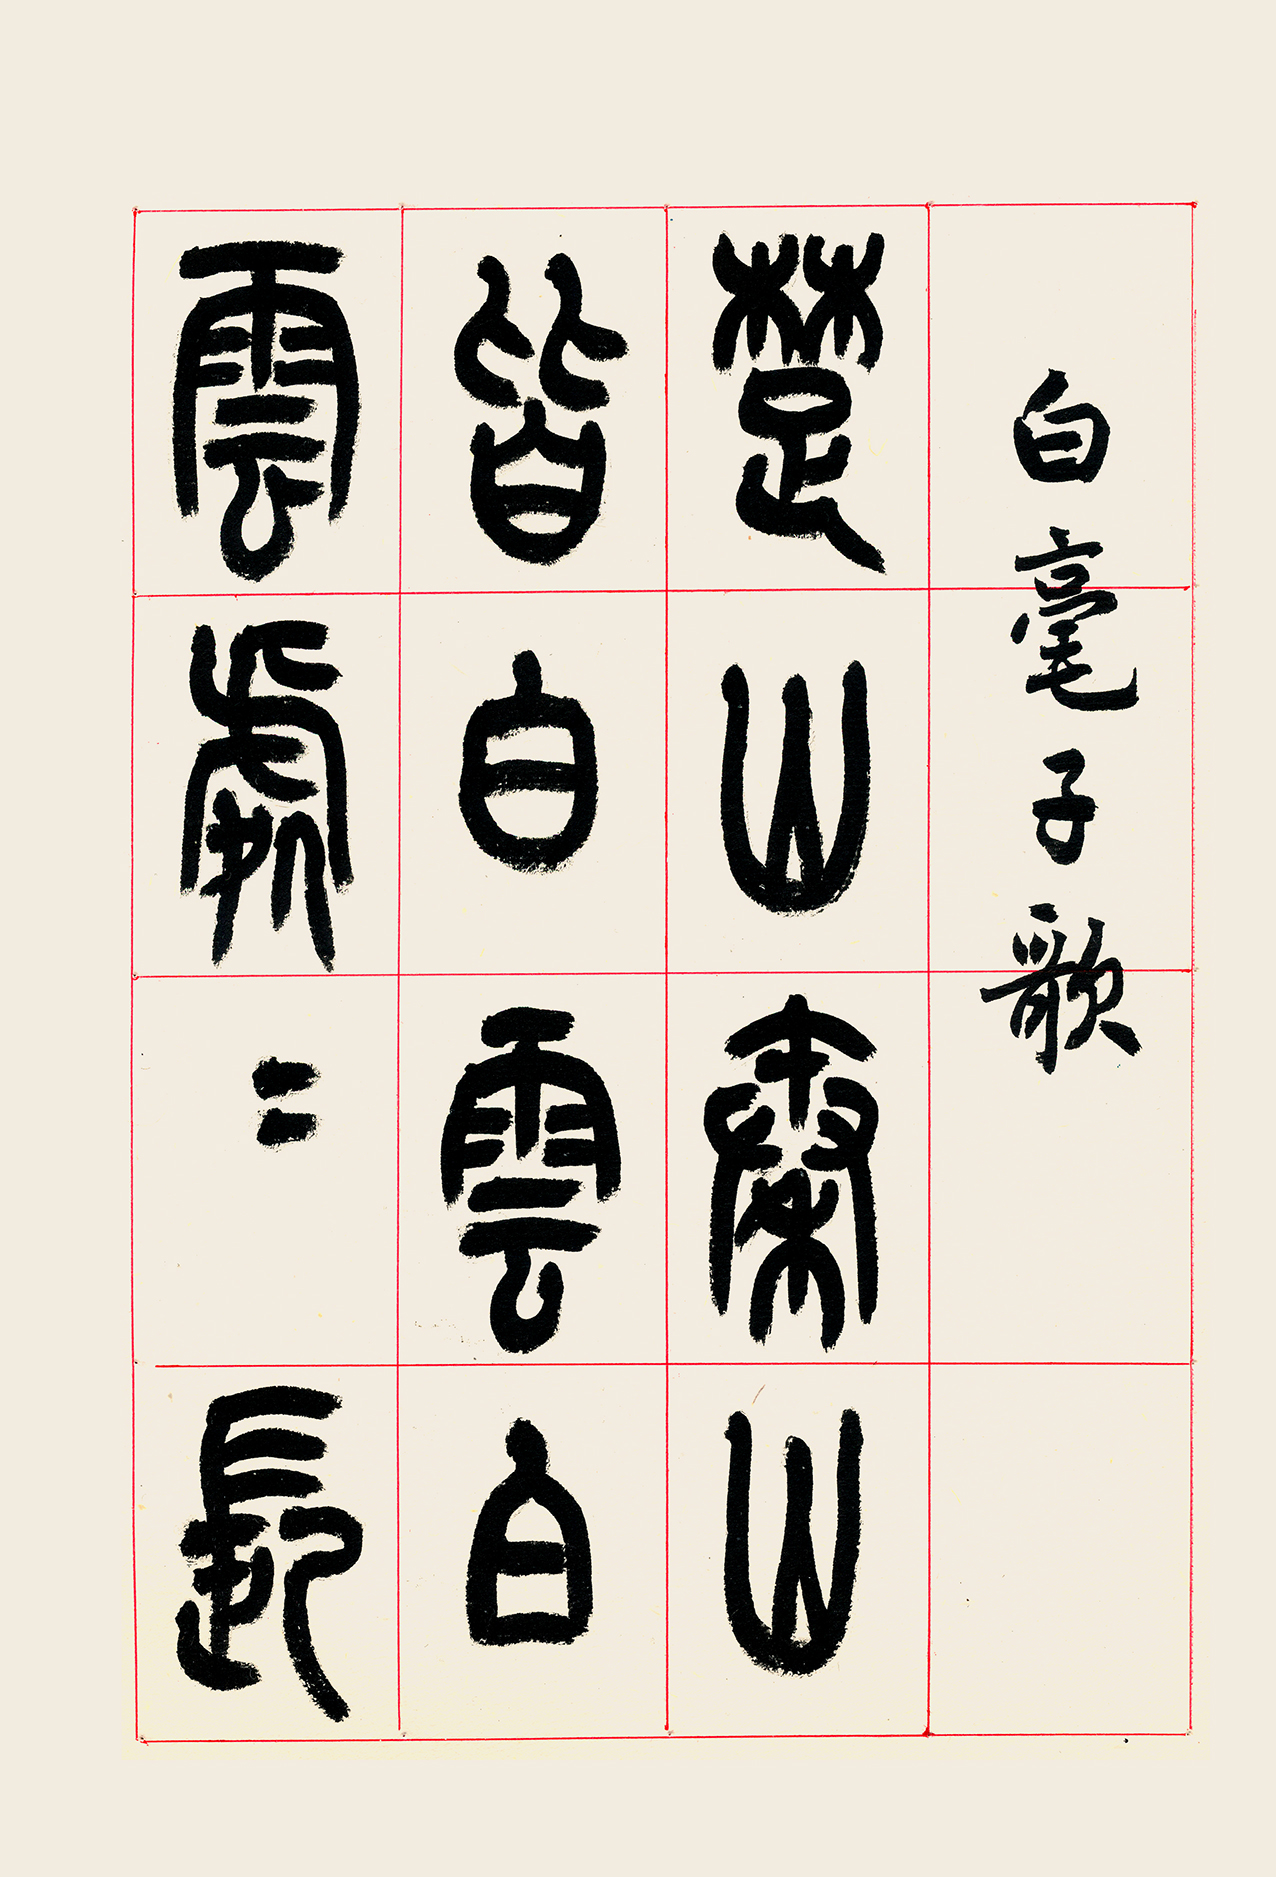 白毫子歌
楚山秦山
皆白雲白
雲處〻長